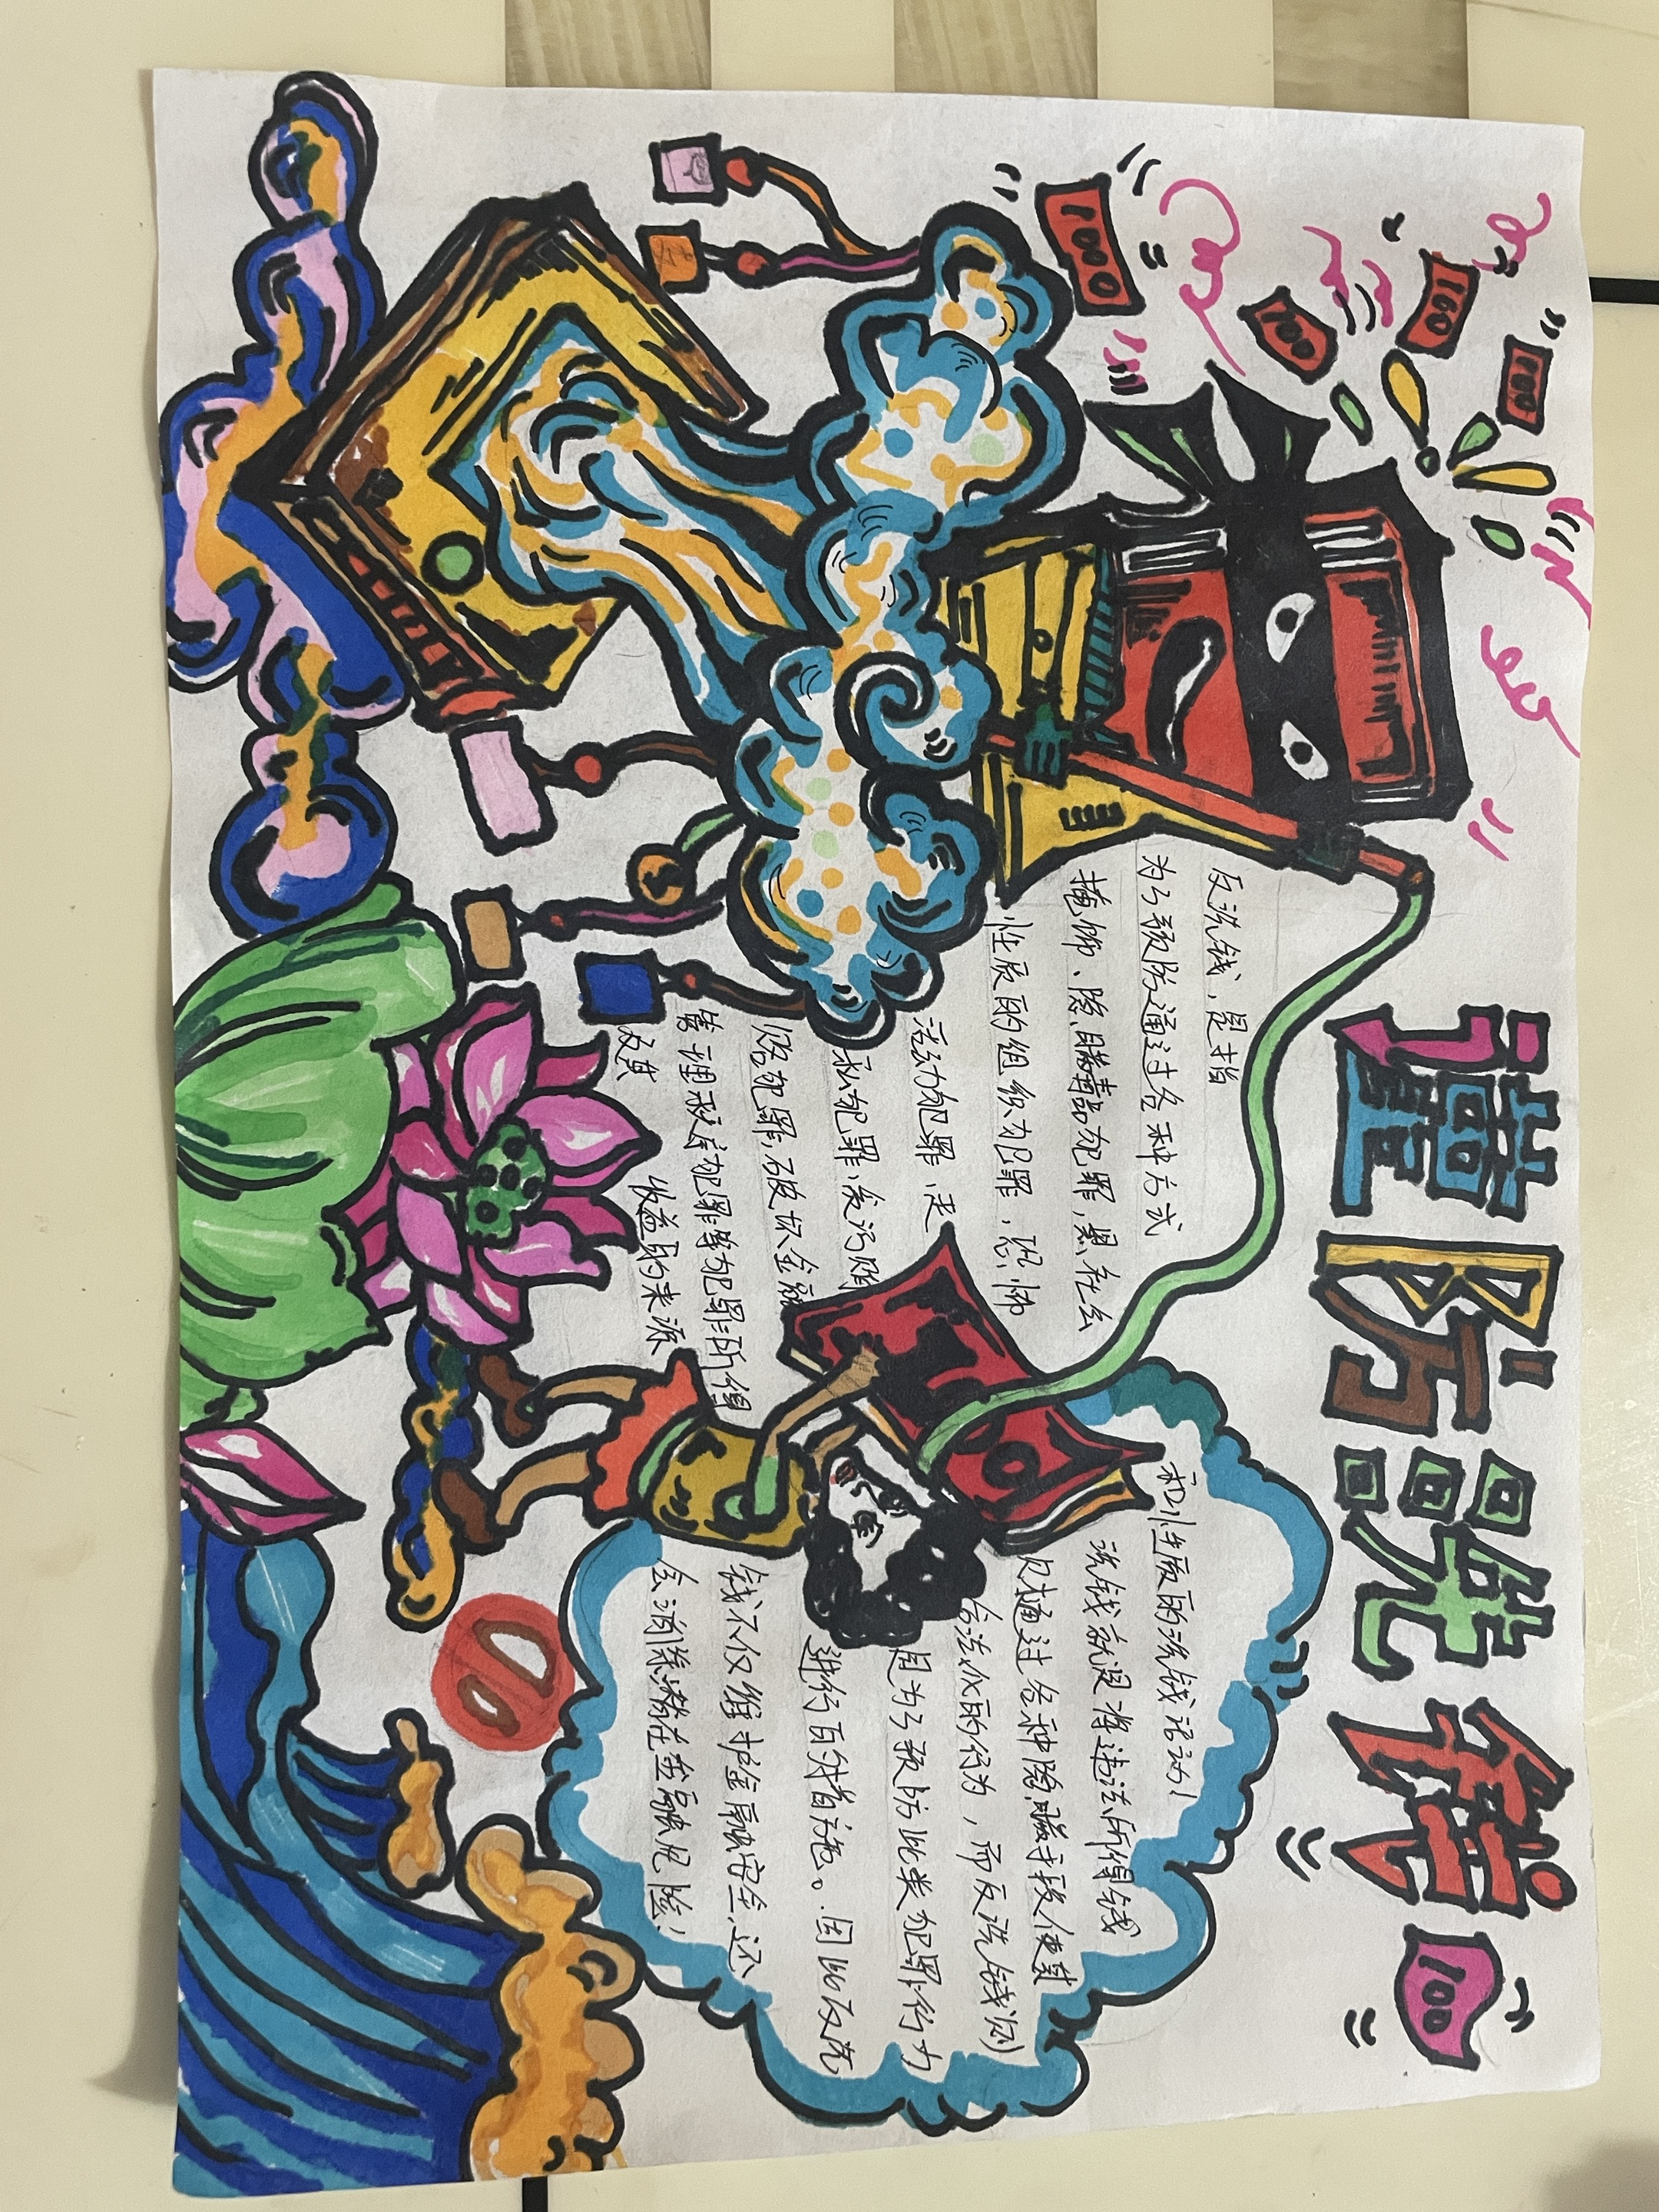 谨防洗钱
100
1000
100
100
100
反洗钱，是指
为了预防通过各种方式
掩饰、隐瞒毒品犯罪，黑社会
性质的组织犯罪，恐怖
活动犯罪，走
私犯罪，贪污贿
赂犯罪，破坏金融
管理秩序犯罪等犯罪所得
及其
收益的来源
和性质的洗钱活动！
洗钱就是将违法所得钱
财通过各种隐瞒手段使其
合法化的行为，而反洗钱则
是为了预防此类犯罪行为
进行
钱不仅维护金融安全，还
会消除潜在金融风险！